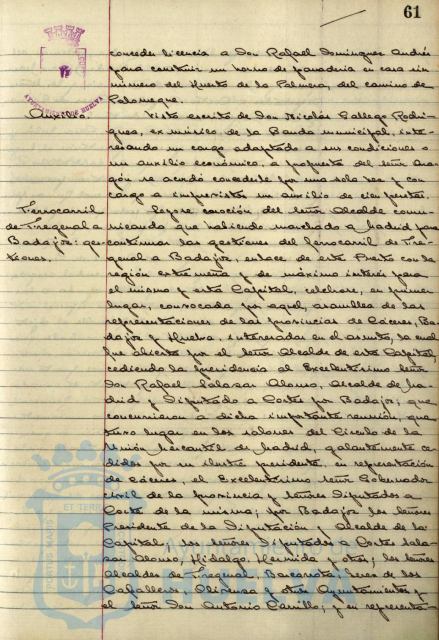 61
conceder licencia a Don Rafael Dominguez Andrés
para construir un horno de panadería en casa sin
número del Huerto de la Palmera, del camino de
Palomeque.
AYUNTAMIENTO DE HUELVA
Auxilio.
Visto escrito de Don Nicolás Gallego Rodri-
guez, ex músico de la Banda municipal, inte-
resando un cargo adaptado a sus condiciones o
un auxilio económico, a propuesta del señor Ara-
gón se acordó concederle por una sola vez y con
cargo a imprevistos un auxilio de cien pesetas.
Ferrocarril
de Fregenal a
Badajoz: ges-
tiones.
Leyose moción del señor Alcalde comu-
nicando que habiendo marchado a Madrid para
continuar las gestiones del ferrocarril de Fre-
genal a Badajoz, enlace de este Puerto con la
región extremeña y de máximo interés para
el mismo y esta Capital, celebrose, en primer
lugar, convocada por aquel, asamblea de las
representaciones de las provincias de Cáceres, Ba-
dajoz y Huelva, interesadas en el asunto, la cual
fue abierta por el señor Alcalde de esta Capital,
cediendo la presidencia al Excelentísimo señor
Don Rafael Salazar Alonso, Alcalde de Ma-
drid y Diputado a Cortes por Badajoz; que
concurrieron a dicha importante reunión, que
tuvo lugar en los salones del Círculo de la
Unión Mercantil de Madrid, galantemente ce-
didos por su ilustre presidente, en representación
de Cáceres, el Excelentísimo señor Gobernador
civil de la provincia y señores Diputados a
Cortes de la misma; por Badajoz los señores
Presidente de la Diputación y Alcalde de la
Capital; los señores Diputados a Cortes Sala-
zar Alonso, Hidalgo, Hermida y otros; los señores
Alcaldes de Fregenal, Barcarrota, Jerez de los
Caballeros, Olivenza y otros Ayuntamientos y
el señor Don Antonio Carrillo; y en representa-